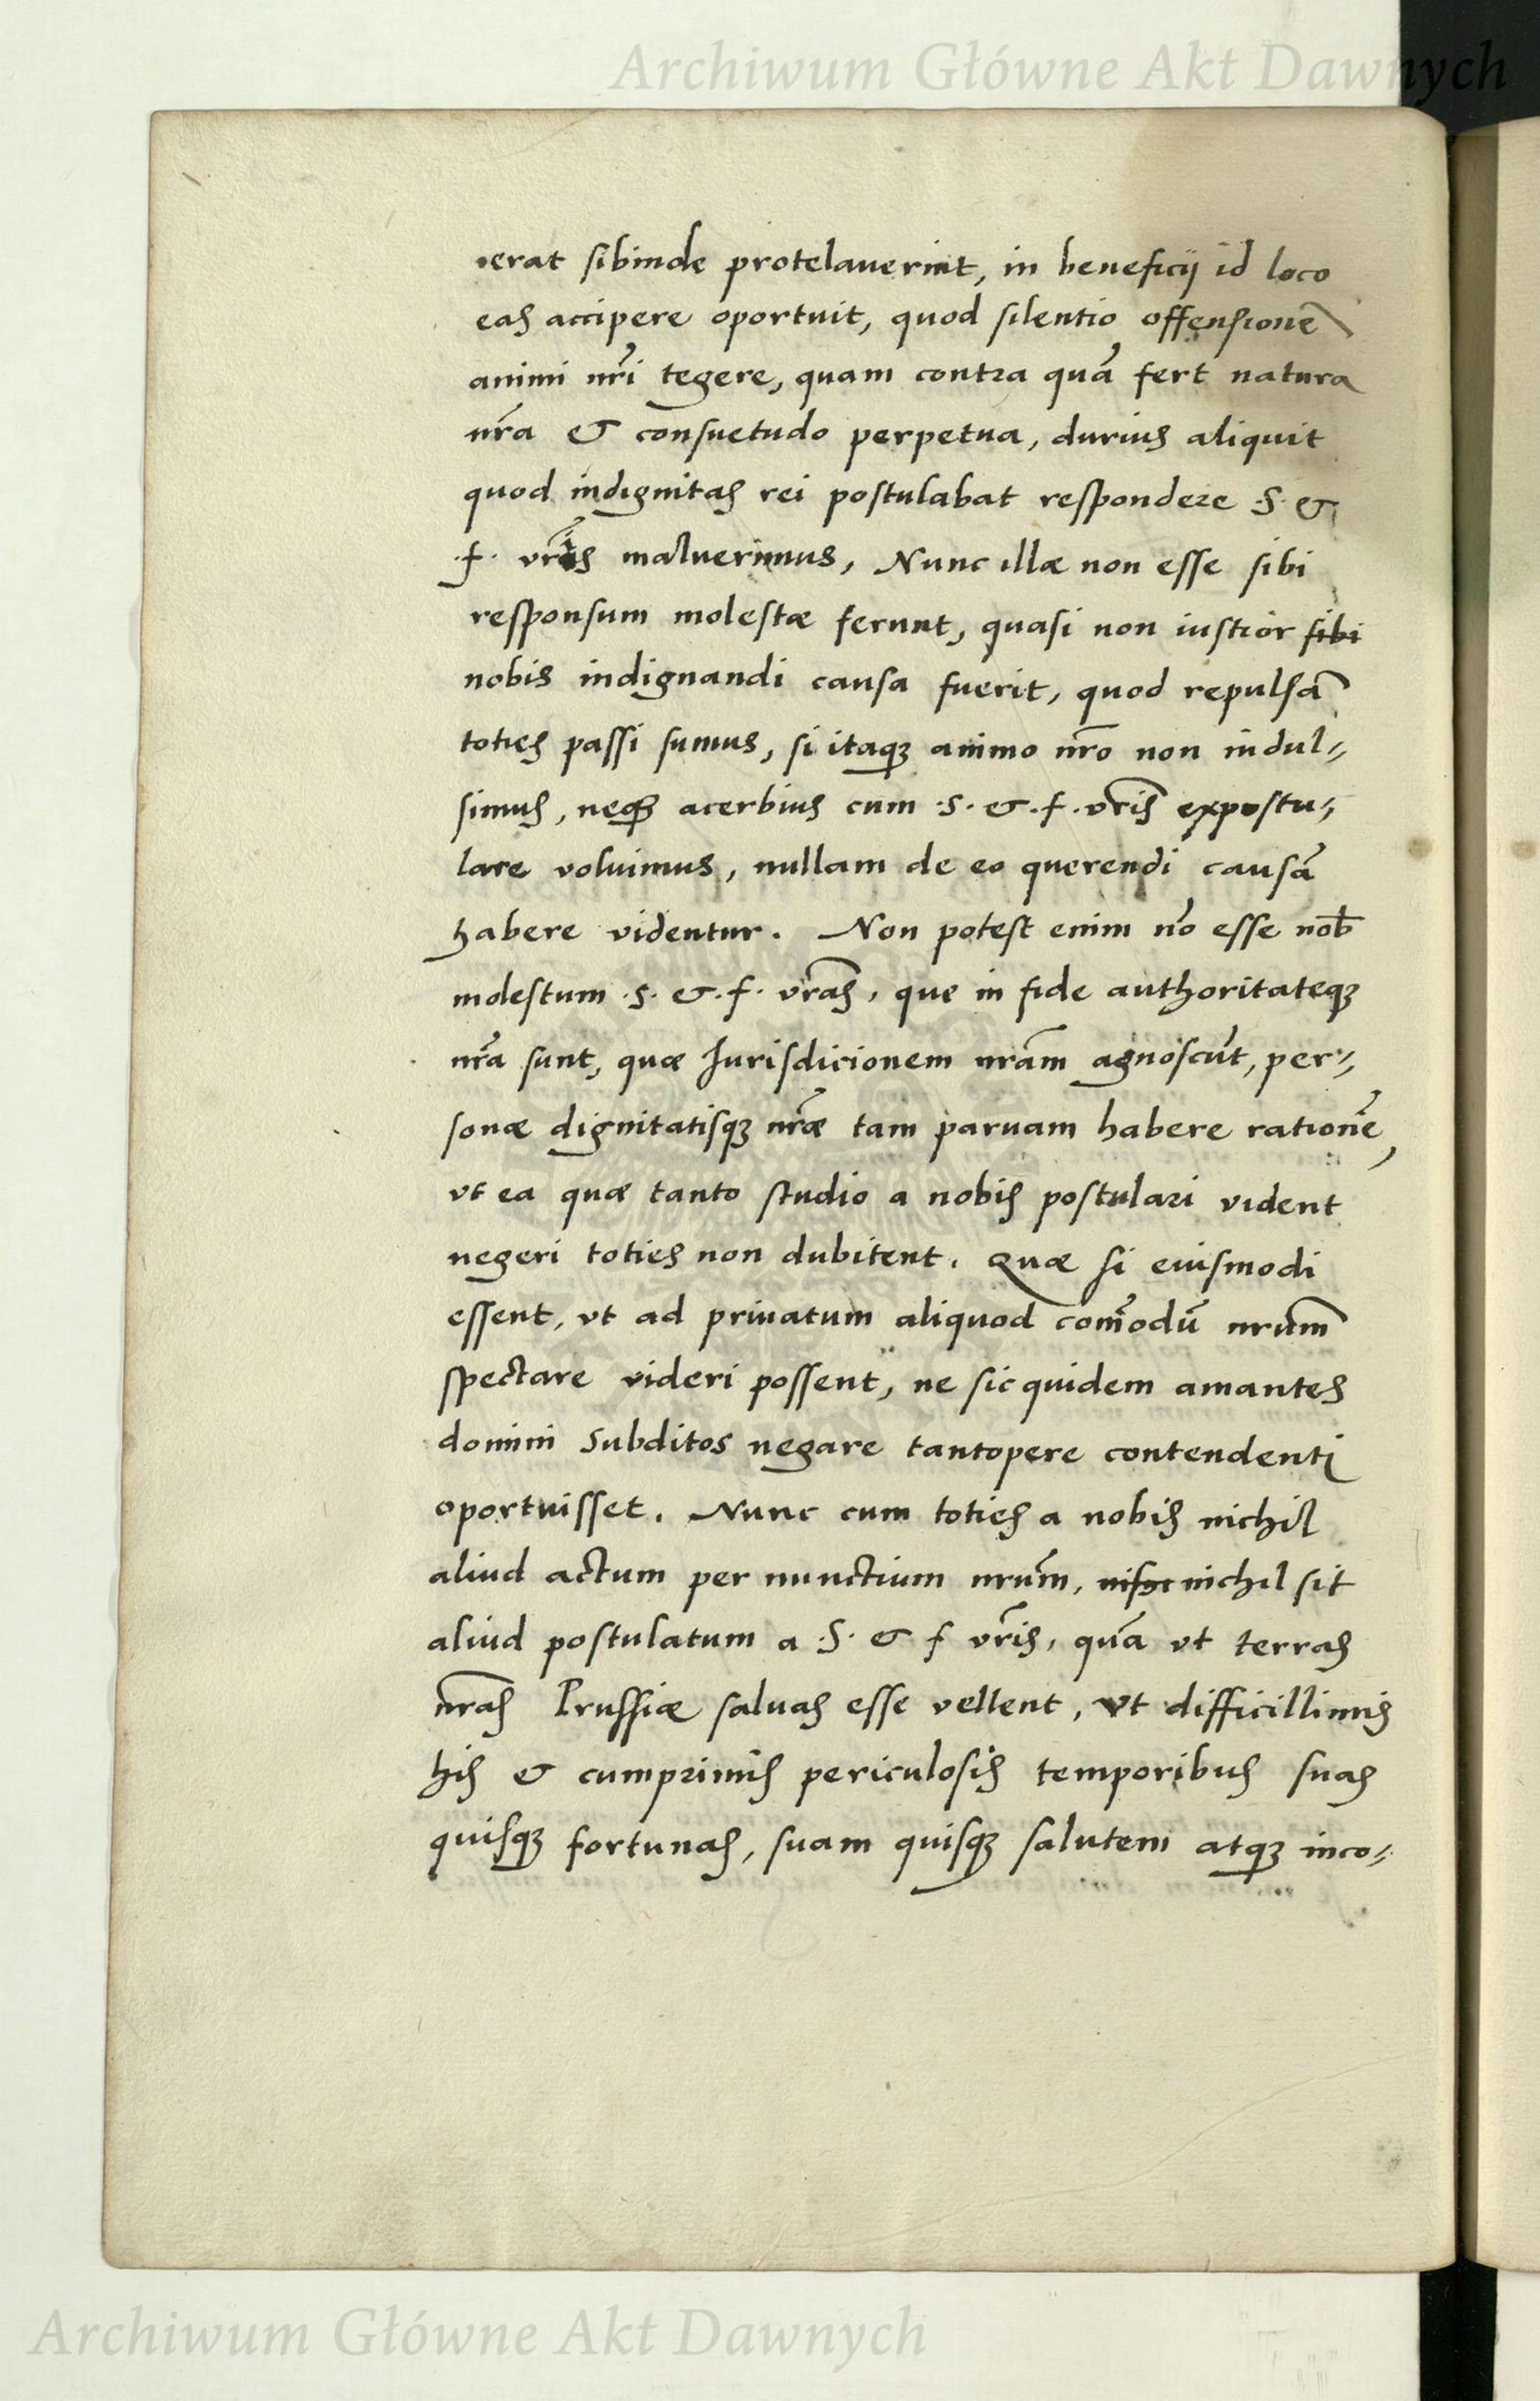 Archiwum Główne Akt Dawnych
ierat sibinde protelauerint, in beneficij id loco
eas accipere oportuit, quod silentio offensionē
animi nr̃i tegere, quam contra quā fert natura
nr̃a & consuetudo perpetua, durius aliquit
quod indignitas rei postulabat respondere .S. &
.f. vr̃is maluerimus, Nunc illæ non esse sibi
responsum molestæ ferunt, quasi non iustior sibi
nobis indignandi causa fuerit, quod repulsā
toties passi sumus, si itaqꝫ animo nr̃o non indul⸗
simus, neqꝫ acerbius cum .S. & .f. vr̃is expostu⸗
lare voluimus, nullam de eo querendi causā
habere videntur. Non potest enim nō esse nob̄
molestum .S. & .f. vr̃as, que in fide authoritateqꝫ
nr̃a sunt, quæ Jurisdicionem nr̃am agnoscūt, per⸗
sonæ dignitatisqꝫ nr̃æ tam paruam habere rationē,
vt ea quæ tanto studio a nobis postulari vident
negeri toties non dubitent. Quæ si euismodi
essent, vt ad priuatum aliquod com̄odū nr̃um
spectare videri possent, ne sic quidem amantes
domini subditos negare tantopere contendenti
oportuisset. Nunc cum toties a nobis nichil
aliud actum per nunctium nr̃um, nichil sit
aliud postulatum a .S. & f vr̃is, quā vt terras
nr̃as Prussiæ saluas esse vellent, vt difficillimis
his & cumprimis periculosis temporibus suas
quisqꝫ fortunas, suam quisqꝫ salutem atqꝫ inco⸗
Archiwum Główne Akt Dawnych